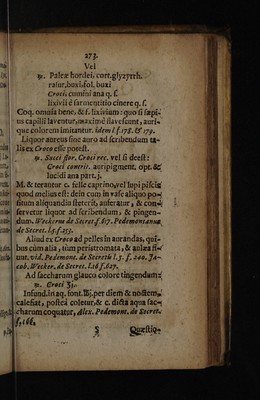 273.
Vel
℞. Paleæ hordei, cort. glyzyrrh.
rasur. buxi, fol. buxi
Croci, cumini ana q. s.
lixivii è sarmentitio cinere q. s.
Coq. omnia benè, & f. lixivium: quo si sæpi-
us capilli laventur, maximè flavescunt, auri-
que colorem imitantur. idem l. f. 178. & 179.
Liquor aureus sine auro ad scribendum ta-
lis ex Croco esse potest.
℞. Succi flor. Croci rec. vel si deest:
Croci contrit. auripigment. opt. &
lucidi ana part. j.
M. & terantur c. felle caprino, vel lupi piscis
quod melius est: dein cum in vase aliquo po-
situm aliquandiu steterit, auferatur, & con-
servetur liquor ad scribendum, & pingen-
dum. Weckerus de Secret. f. 617. Pedemontanus
de Secret. l. 3. f. 255.
Aliud ex Croco ad pelles in aurandas, qui-
bus cùm alia, tùm peristromata, & aulæa fi-
unt. vid. Pedemont. de Secretis l. 3. f. 200. Ja-
cob. Wecker. de Secret. l. 16. f. 627.
Ad saccharum glauco colore tingendum:
℞. Croci ʒj.
Infund. in aq. font. ℔j. per diem & noctem,
calefiat, postea coletur, & c. dicta aqua sac-
charum coquatur, Alex. Pedemont. de Secret.
f. 166.
S
Quæstio-